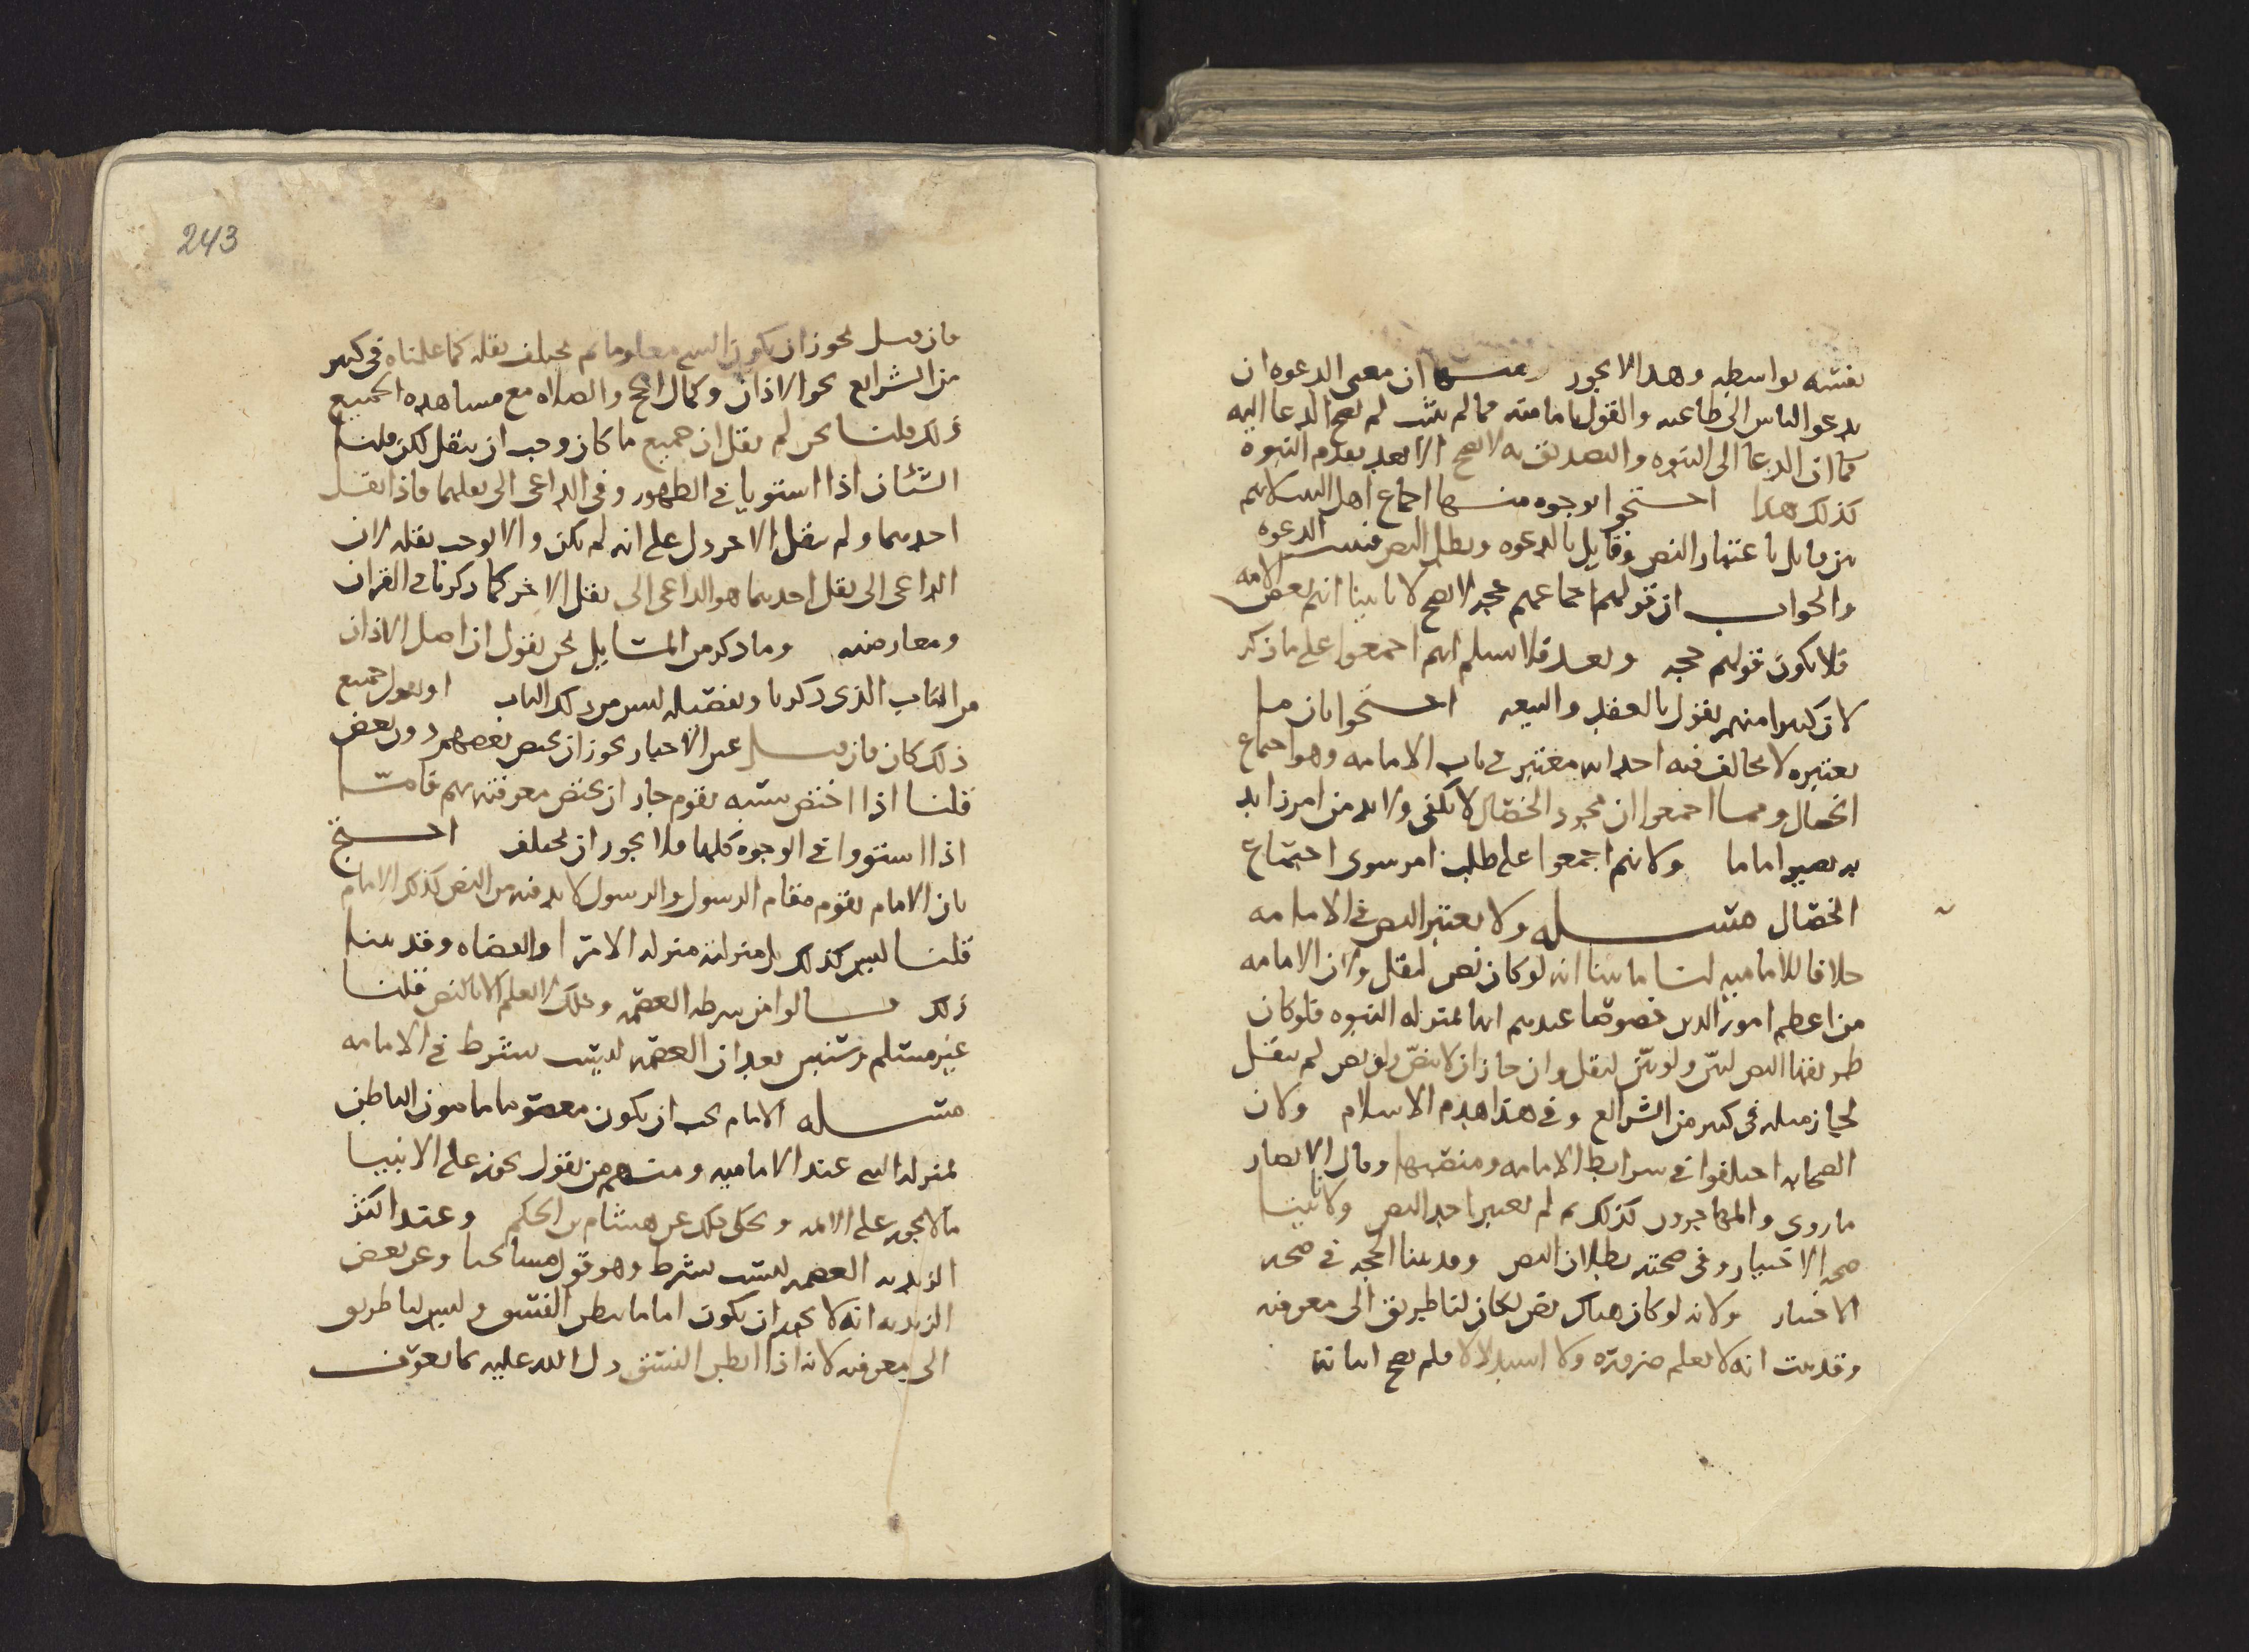 نفسه بواسطه وهذا لا يجوز ومنها ان معنى الدعوه ان
يدعو الناس الى طاعته والقول بامامته فما لم يثبت لم يصح الدعا اليه
كما ان الدعا الى النبوه والتصديق به لا يصح الا بعد تقدم النبوة
كذلك هذا احتجوا بوجوه منها اجماع اهل البيت لانهم
بين قايل باعتبار النص وقايل بالدعوه وبطل النص فثبتت الدعوه
والجواب ان قولهم اجماعهم حجه لا يصح لانا بينا انهم بعض الامه
فلا يكون قولهم حجه وبعد فلا نسلم انهم اجمعوا على ما ذكر
لان كثيرا منهم يقول بالعقد والبيعه احتجوا بان ما
نعتبره لا يخالف فيه احد انه معتبر في باب الامامه وهو اجماع
الخصال ومما اجمعوا ان مجرد الخصال لا يكفي ولا بد من امر زايد
به يصير اماما ولانهم اجمعوا على طلب امر سوى اجتماع
الخصال مسله ولا يعتبر النص في الامامه
خلافا للاماميه لنا ما بينا انه لو كان نص لنقل ولان الامامه
من اعظم امور الدين خصوصا عندهم انها بمنزله النبوه فلو كان
طريقها النص لبين ولو بين لنقل وان جاز ان لا ينص او نص لم ينقل
لجاز مثله في كثير من الشرايع وفي هذا هدم الاسلام ولان
الصحابه اختلفوا في شرايط الامامه ومنصبها وقال الانصار
ما روي والمهاجرون كذلك ثم لم يعتبر احد النص ولانا بينا
صحه الاختيار وفي صحته بطلان النص وقد بينا الحجه في صحه
الاختيار ولانه لو كان هناك نص لكان لنا طريق الى معرفته
وقد بينت انه لا يعلم ضرورة ولا استدلالا فلم يصح اثباته
243
فان قيل يجوز ان يكون الشي معلوما ثم يختلف نقله كما علمناه في كثير
من الشرايع نحو الاذان وكمال الحج والصلاه مع مشاهده الجميع
ذلك قلنا نحن لم نقل ان جميع ما كان وجب ان ينقل لكن قلنا
الشيئان اذا استويا في الظهور وفي الداعي الى نقلهما فاذا نقل
احدهما ولم ينقل الاخر دل على انه لم يكن والا لوجب نقله لان
الداعي الى نقل احدهما هو الداعي الى نقل الاخر كما ذكرنا في القران
ومعارضته وما ذكر من المسايل نحن نقول ان اصل الاذان
من الباب الذي ذكرنا وتفصيله ليس من ذلك الباب او نقول جميع
ذلك كان فان قيل غير الاخبار يجوز ان يختص بعضهم دون بعض
قلنا اذا اختص سببه بقوم جاز ان يختص معرفته بهم فاما
اذا استووا في الوجوه كلها فلا يجوز ان يختلف احتج
بان الامام يقوم مقام الرسول والرسول لا بد فيه من النص كذلك الامام
قلنا ليس كذلك بل منزلته منزله الامرا والقضاه وقد بينا
ذلك قالوا من شرطه العصمه وذلك لا يعلم الا بالنص قلنا
غير مسلم وسنبين بعد ان العصمه ليست بشرط في الامامه
مسله الامام يجب ان يكون معصوما مامون الباطن
بمنزله النبي عند الاماميه ومنهم من يقول يجوز على الانبيا
ما لا يجوز على الايمه ويحكى ذلك عن هشام بن الحكم وعند اكثر
الزيديه العصمه ليست بشرط وهو قول مشايخنا وعن بعض
الزيديه انه لا يجوز ان يكون اماما يبطن الفسق وليس لنا طريق
الى معرفته لانه اذا ابطن الفسق دل الله عليه كما نعوت